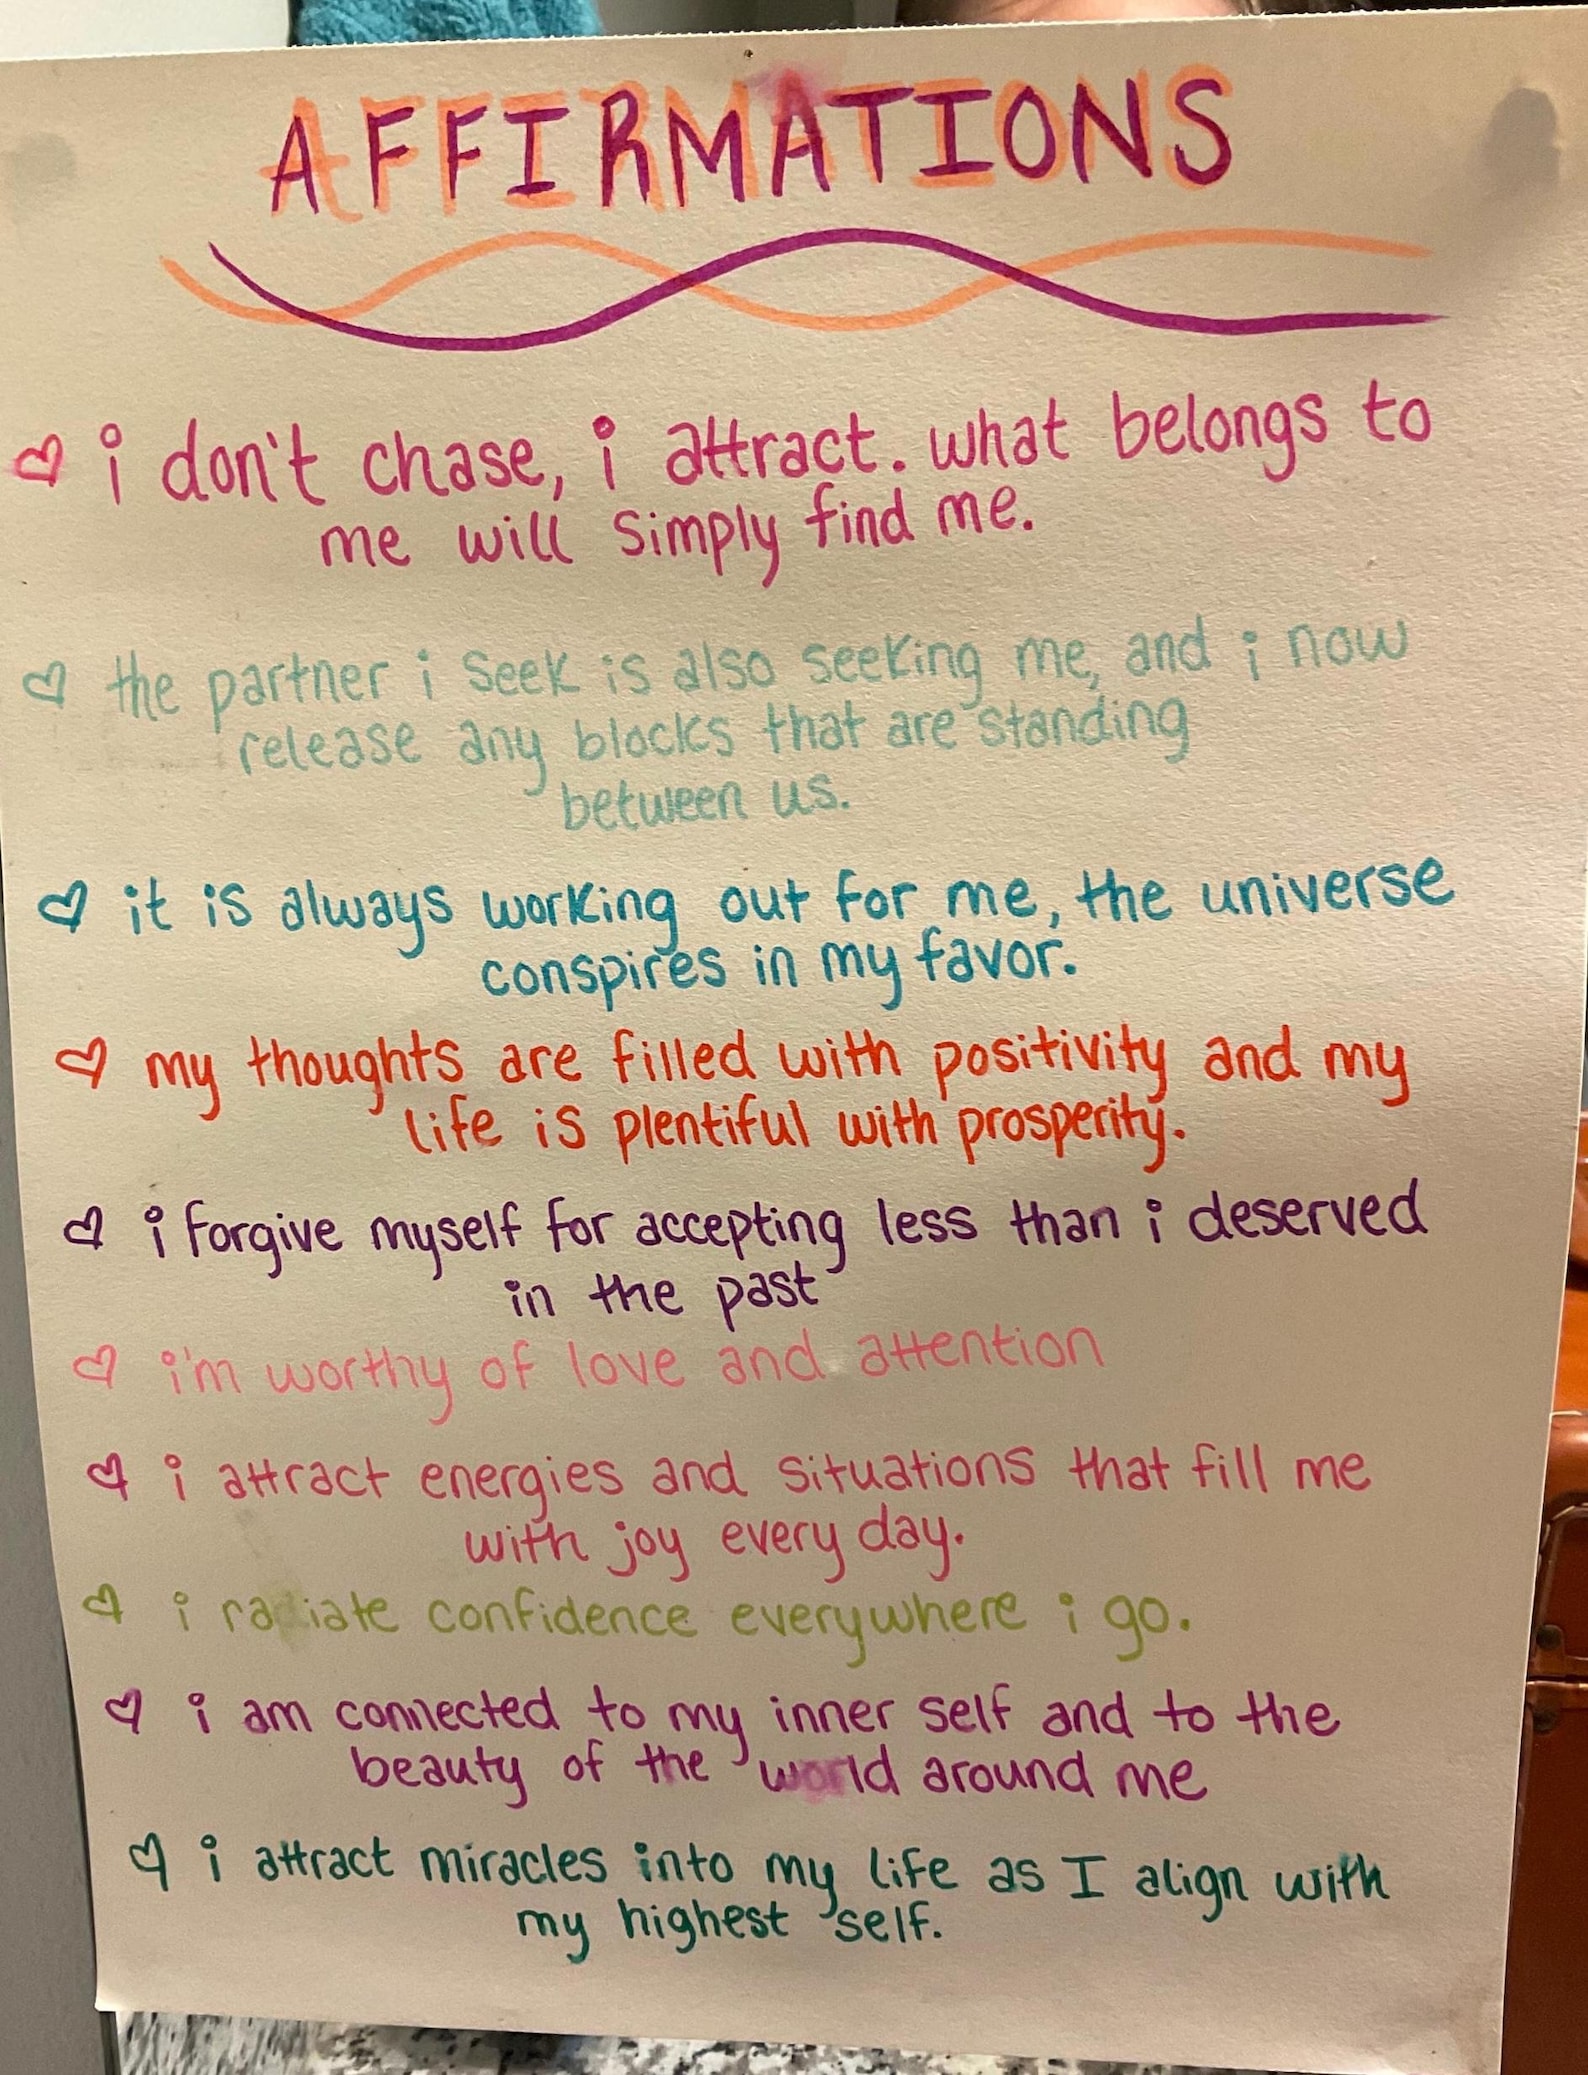 AFFIRMATIONS
i don't chase, i attract. what belongs to
me will simply find me.
the partner i seek is also seeking me, and i now
release any blocks that are standing
between us.
it is always working out for me, the universe
conspires in my favor.
my thoughts are filled with positivity and my
life is plentiful with prosperity.
i forgive myself for accepting less than i deserved
in the past
i'm worthy of love and attention
i attract energies and situations that fill me
with joy every day.
i radiate confidence everywhere i go.
i am connected to my inner self and to the
beauty of the world around me
i attract miracles into my life as I align with
my highest self.